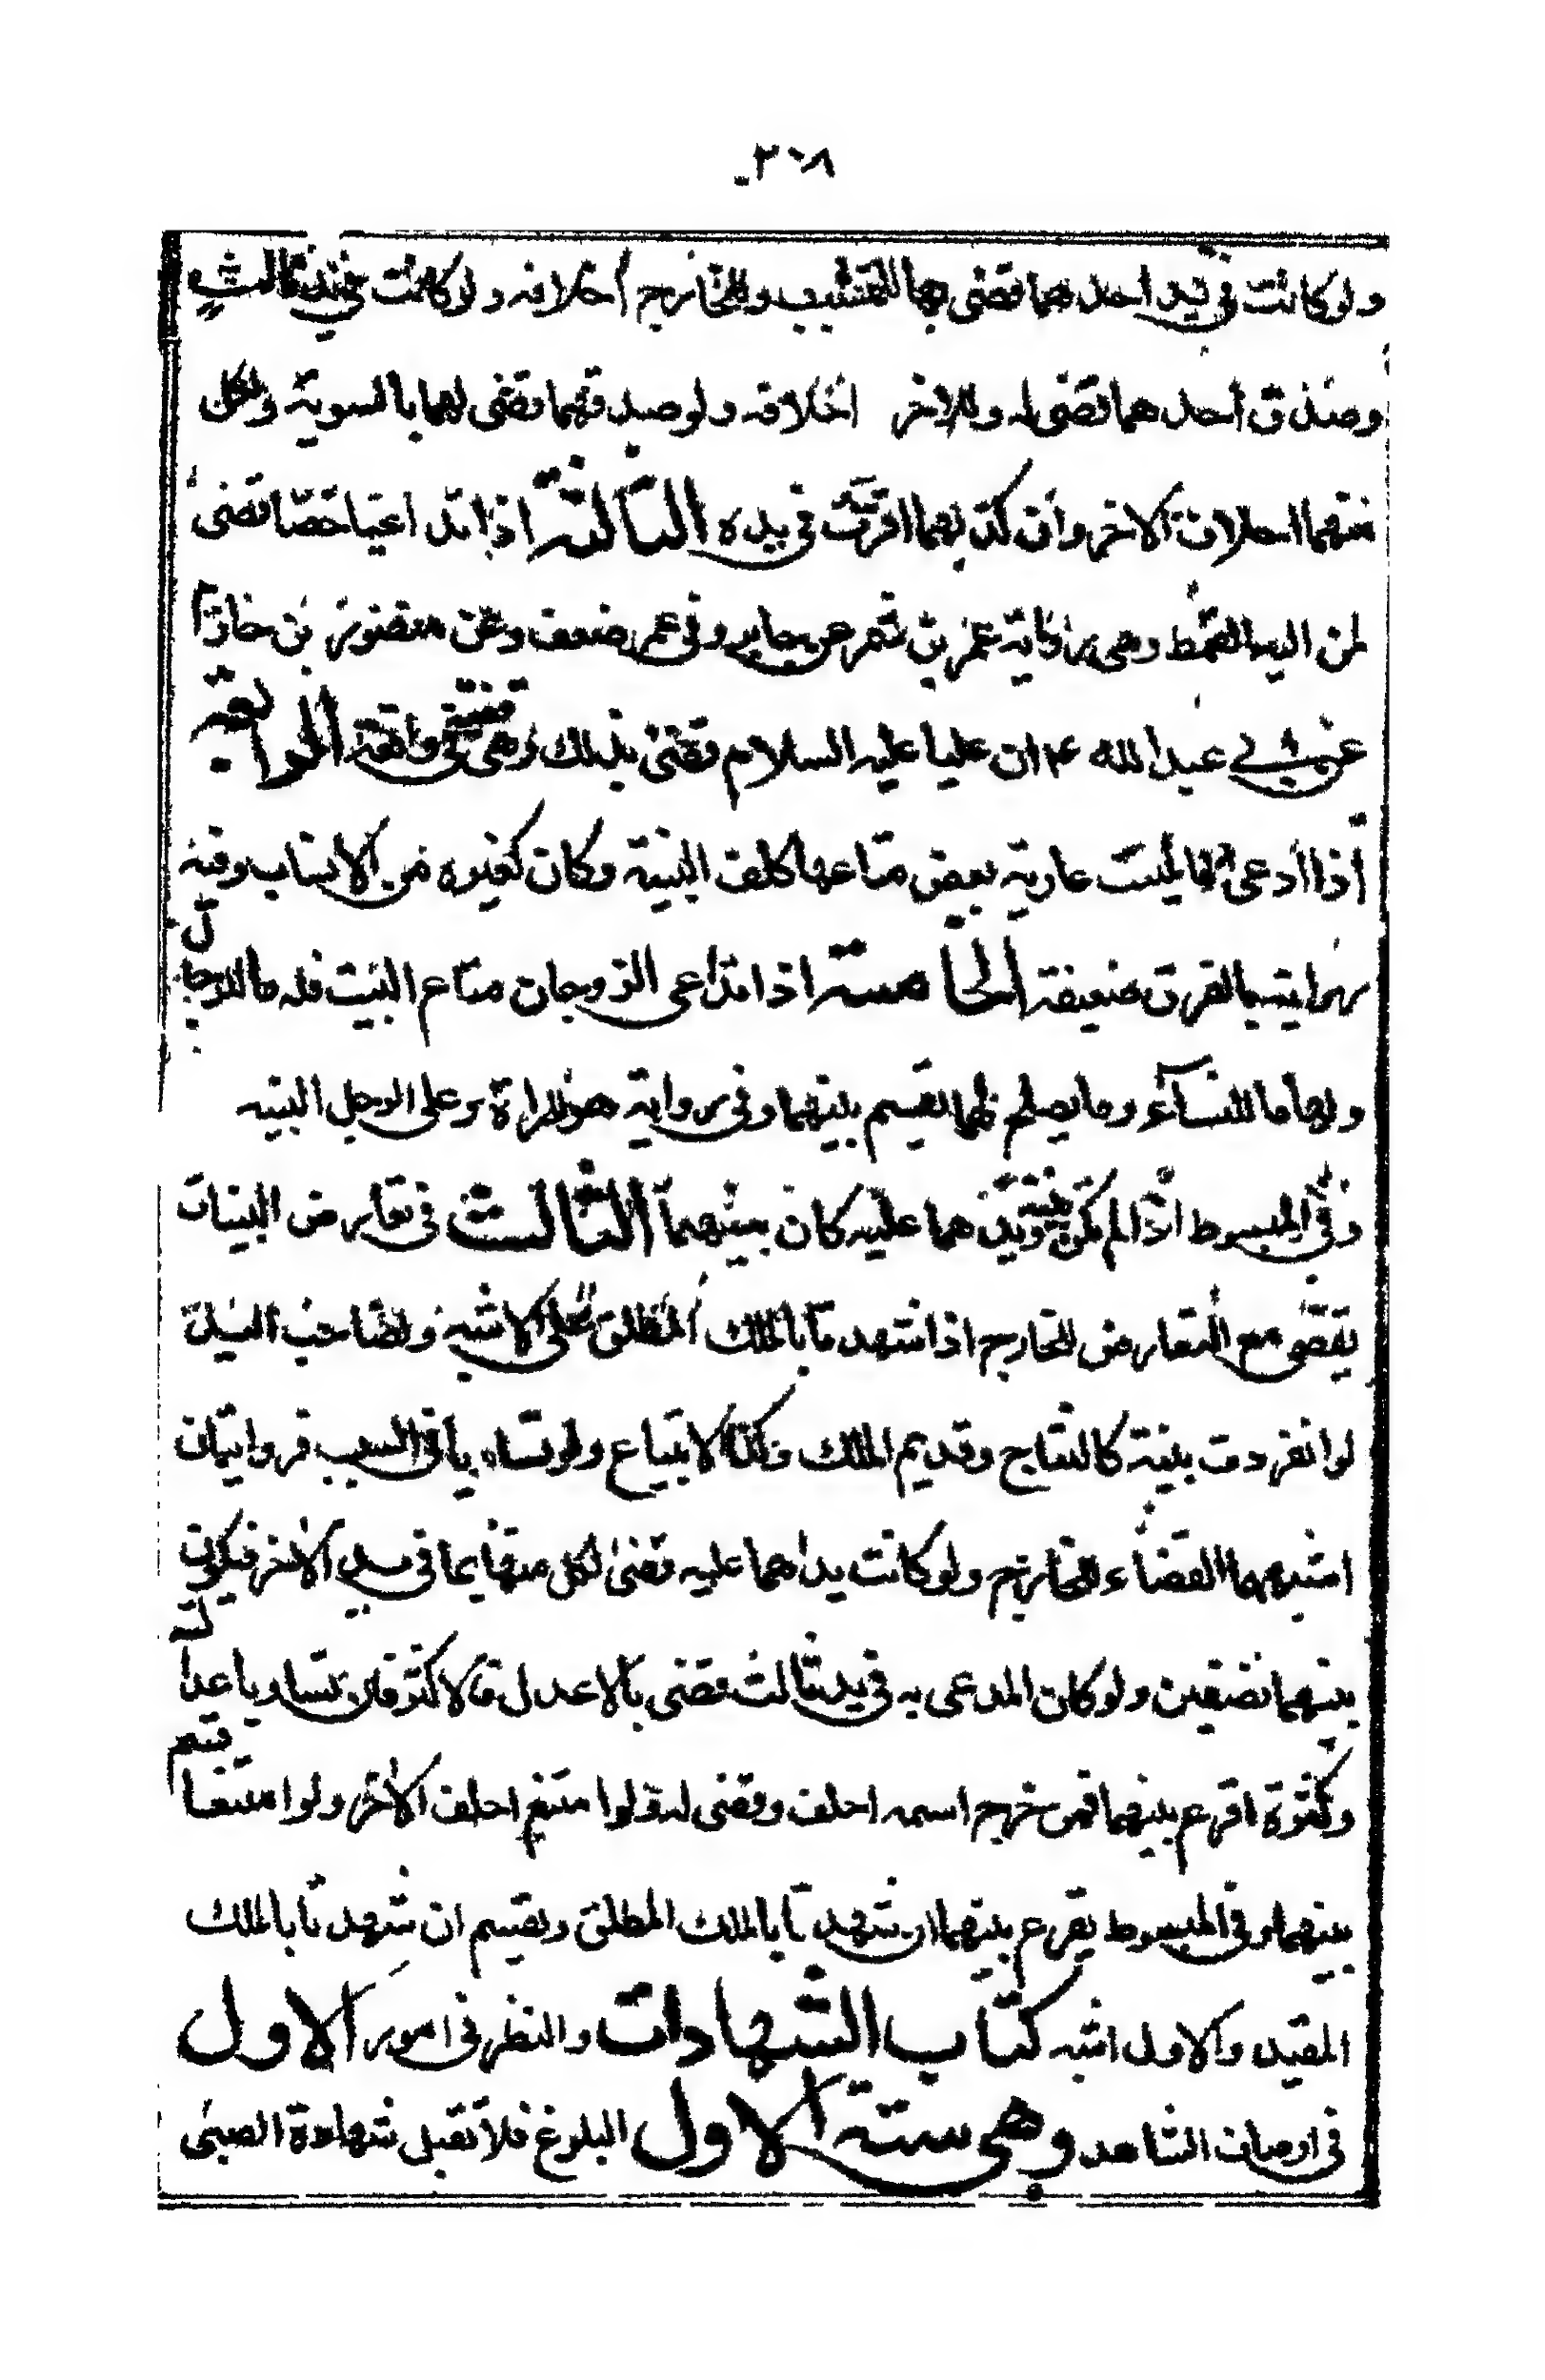 ٢٠٨
ولو كانت في يد احدهما قضى بها للمتشبث وللخارج احلافه ولو كانت في يد ثالث
وصدق احدهما قضى له وللاخر احلافه ولو صدقهما قضى لهما بالسوية ولكل
منهما احلاف الاخر وان كذبهما اقرت في يده الثالثة اذا تداعيا خصا قضى
لمن اليه القمط وهي رواية عمر بن شمر عن جابر وفي عمر ضعف وعن منصور بن حازم
عن ابي عبد الله ع ان عليا عليه السلام قضى بذلك وهي قضية في واقعة الرابعة
اذا ادعى ابو الميت عارية بعض متاعها كلف البينة وكان كغيره من الانساب وفيه
رواية بالفرق ضعيفة الخامسة اذا تداعى الزوجان متاع البيت فله ما للرجال
ولها ما للنسآء وما يصلح لهما يقسم بينهما وفي رواية هو للمراة وعلى الرجل البينه
وفي المبسوط اذا لم تكن بينة ويدهما عليه كان بينهما الثالث في تعارض البينات
يقضى مع التعارض للخارج اذا شهدتا بالملك المطلق على الاشبه ولصاحب اليد
لو انفردت بينة كالنتاج وقديم الملك وكذا الابتياع ولو تساويا في السبب فروايتان
اشبههما القضاء للخارج ولو كانت يداهما عليه قضى لكل منهما بما في يد الاخر فيكون
بينهما نصفين ولو كان المدعى به في يد ثالث قضى بالاعدل فالاكثر فان تساويا عدالة
وكثرة اقرع بينهما فمن خرج اسمه احلف وقضى له ولو امتنع احلف الاخر ولو امتنعا قسم
بينهما وفي المبسوط يقرع بينهما ان شهدتا بالملك المطلق ويقسم ان شهدتا بالملك
المقيد والاول اشبه كتاب الشهادات والنظر في امور الاول
في اوصاف الشاهد وهي ستة الاول البلوغ فلا تقبل شهادة الصبي